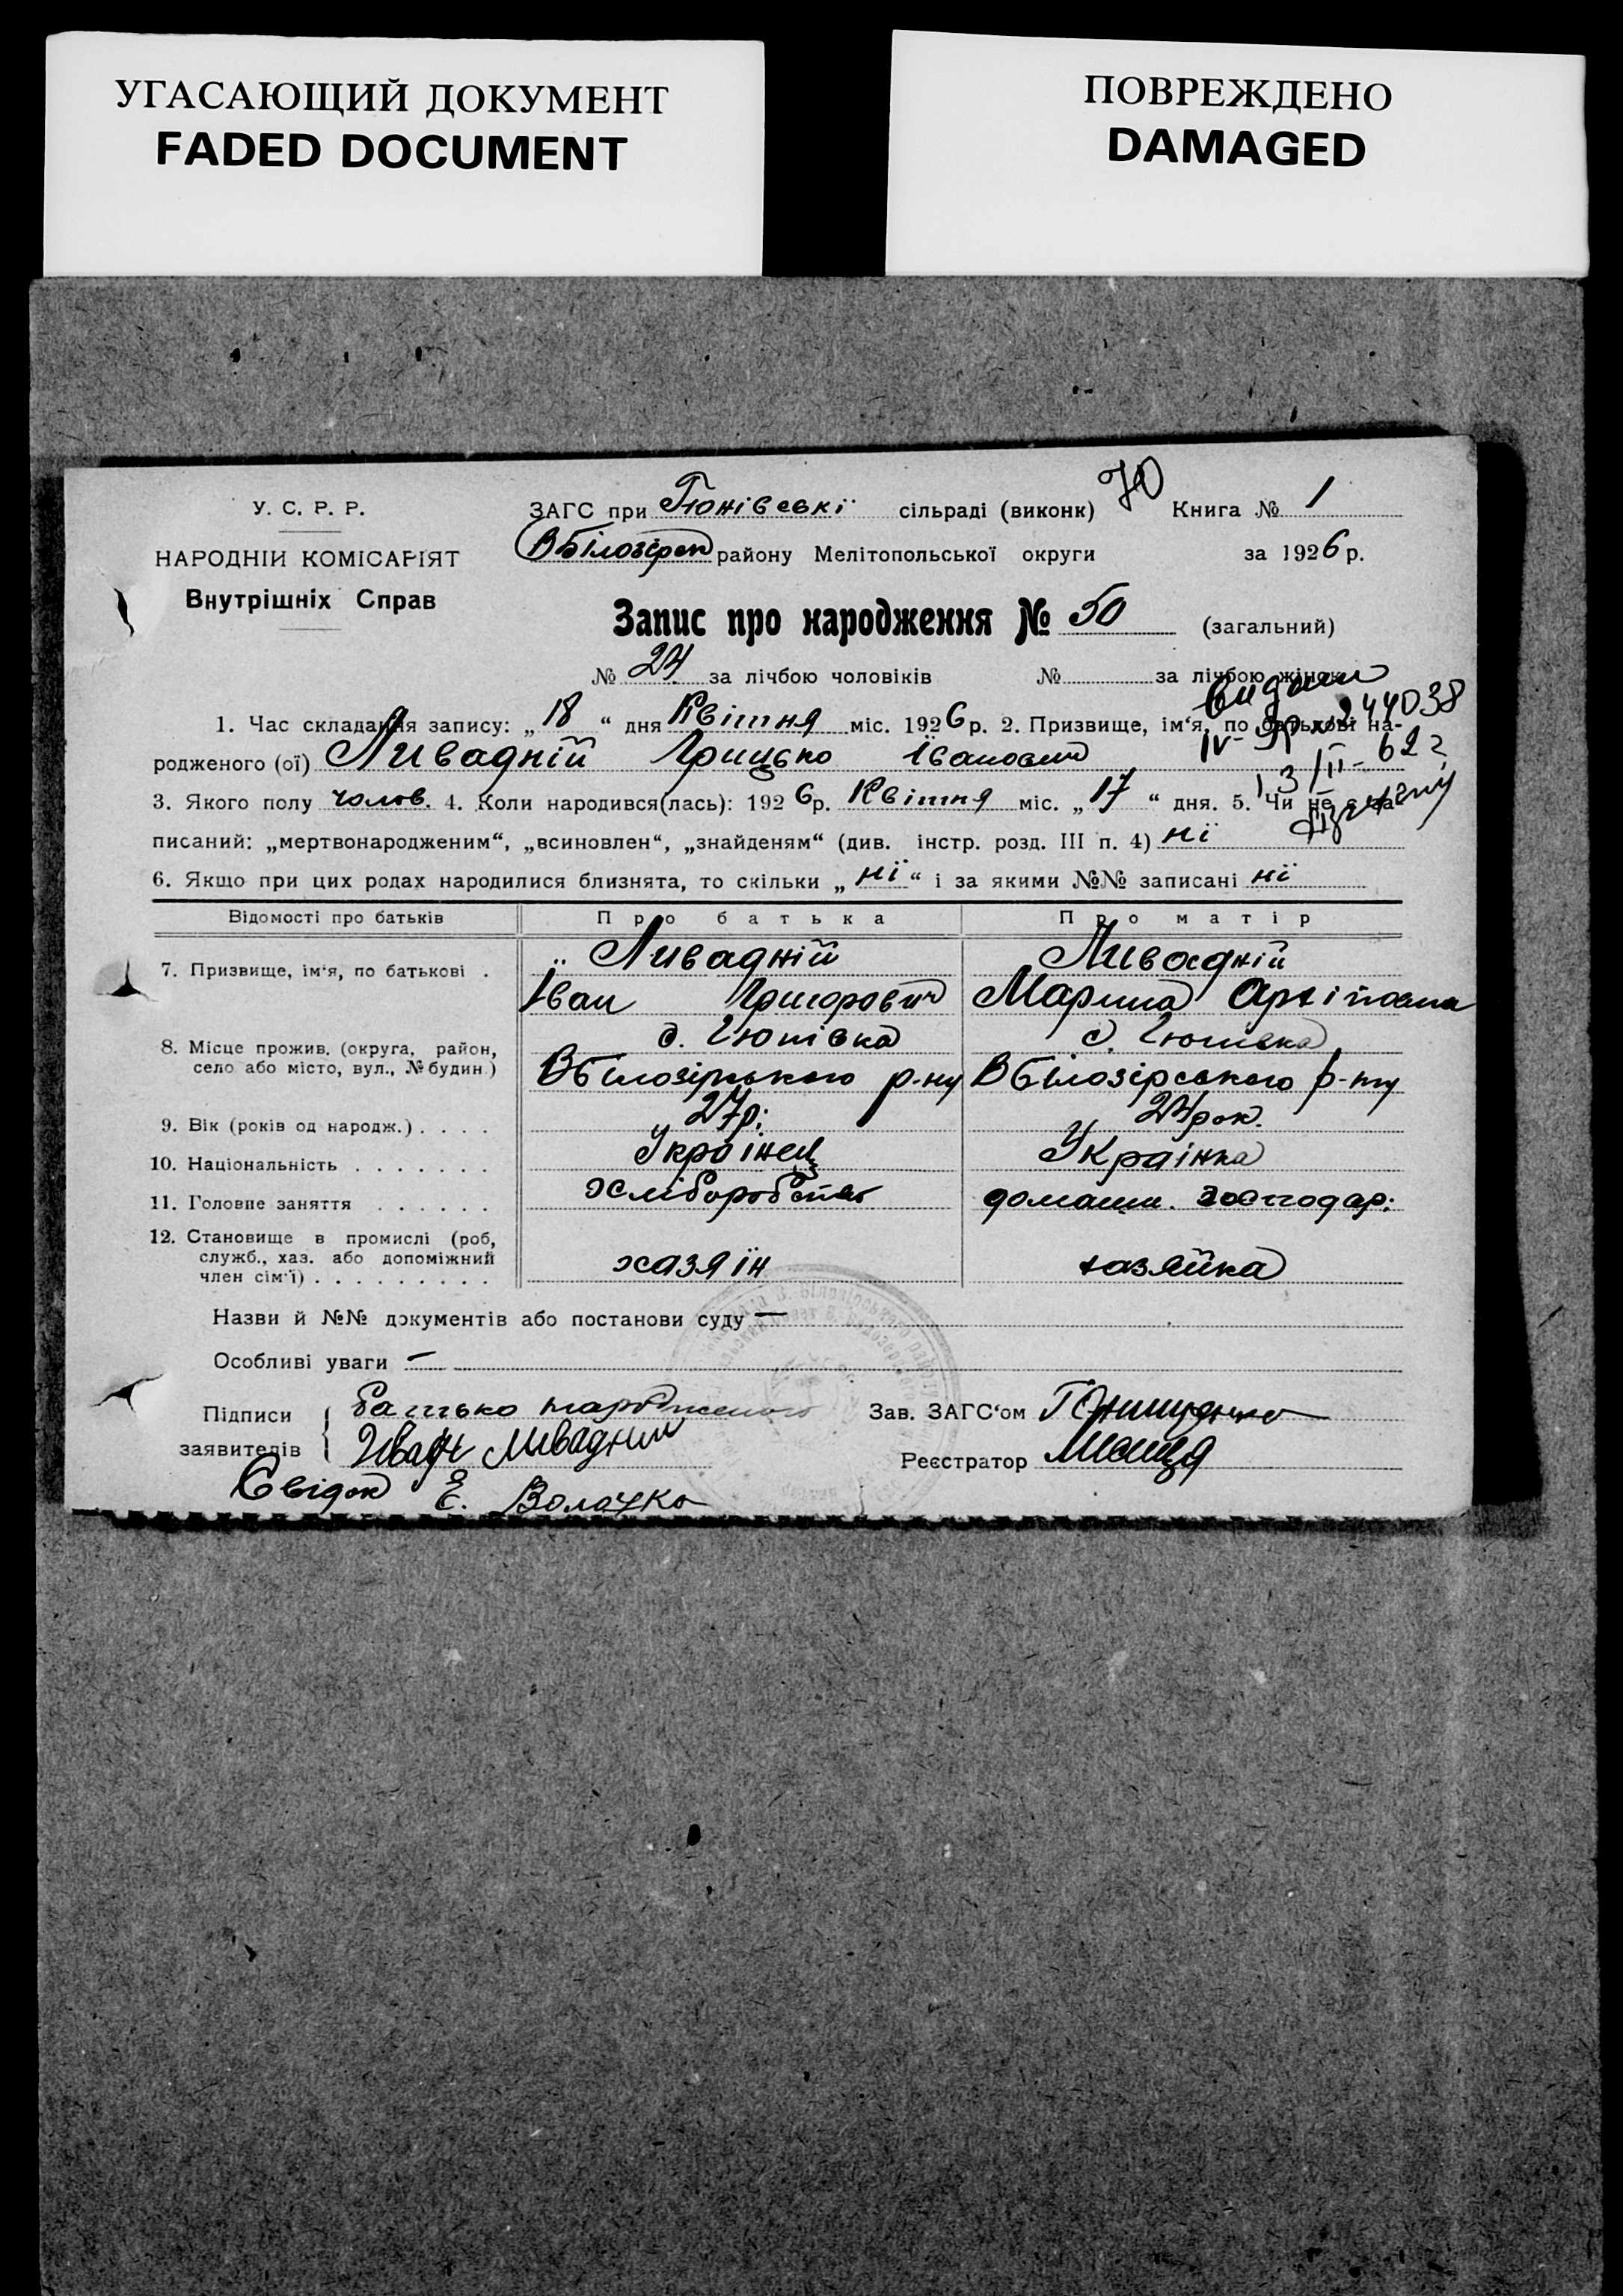 УГАСАЮЩИЙ ДОКУМЕНТ
FADED DOCUMENT
ПОВРЕЖДЕНО
DAMAGED
У. С. Р. Р.
НАРОДНІЙ КОМІСАРІЯТ
Внутрішніх Справ
ЗАГС при Гюнівські сільраді (виконк) Книга № 1
ВБілозірск району Мелітопольської округи за 1926 р.
Запис про народження № 50 (загальний)
№ 24 за лічбою чоловіків № за лічбою жінок
видано
1. Час складання запису: „ 18 “ дня Квітня міс. 1926 р. 2. Призвище, ім‘я, по батькові на-
родженого (ої) Ливадній Грицько Іванович
3. Якого полу чолов. 4. Коли народився(лась): 1926 р. Квітня міс. „ 17 “ дня. 5. Чи не є за-
писаний: „мертвонародженим“, „всиновлен“, „знайденям“ (див. інстр. розд. III п. 4) ні
6. Якщо при цих родах народилися близнята, то скільки „ ні “ і за якими №№ записані ні
Відомості про батьків Про батька Про матір
7. Призвище, ім‘я, по батькові . Ливадній Ливадній
Іван Григорович Марина Архіповна
8. Місце прожив. (округа, район, с. Гюнівка с. Гюнівка
село або місто, вул., № будин.) ВБілозірського р-ну ВБілозірського р-ну
9. Вік (років од народж.) . . . . 27 р. 24 рок.
10. Національність . . . . . . . Українец Українка
11. Головне заняття . . . . . . хліборобство домашн. господар.
12. Становище в промислі (роб,
служб., хаз. або допоміжний
член сім‘ї) . . . . . . . . . хазяїн хазяйка
Назви й №№ документів або постанови суду —
Особливі уваги —
Підписи батько народженого Зав. ЗАГС‘ом
заявителів Иван Ливадний Реєстратор
Свідок Є. Волочко